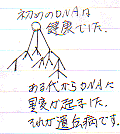 初めのDNAは
健康でした。
ある代からDNAに
異変が起きました。
それが遺伝病です。